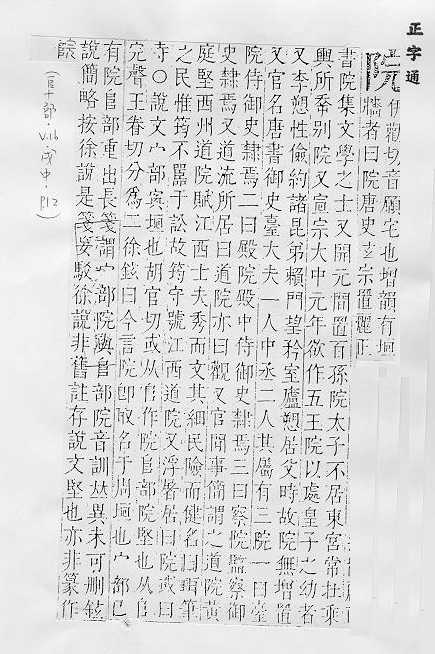 正字通
院 伊眷切音願宅也增韻有垣
牆者曰院唐史玄宗置麗正
書院集文學之士又開元間置百孫院太子不居東宮常在乘
輿所幸别院又宣宗大中元年欲作五王院以處皇子之幼者
又李愬性儉約諸昆弟賴門望矜室廬愬居父時故院無增置
又官名唐書御史臺大夫一人中丞二人其屬有三院一曰臺
院侍御史隸焉二曰殿院殿中侍御史隸焉三曰察院監察御
史隸焉又道流所居曰道院亦曰觀又官閒事簡謂之道院黃
庭堅西州道院賦江西士夫秀而文其細民險而健名曰珥筆
之民惟筠不嚚于訟故筠守號江西道院又浮屠居曰院或曰
寺○說文宀部寏垣也胡官切或从𨸏作院𨸏部院堅也从𨸏
完聲王眷切分爲二徐鉉曰今言院卽取名于周垣也宀部已
有院𨸏部重出長箋謂宀部院與𨸏部院音訓𠀤異未可删鉉
說簡略按徐說是箋妄駁徐說非舊註存說文堅也亦非篆作
院
(𨸏部.V.16戌中.P12)